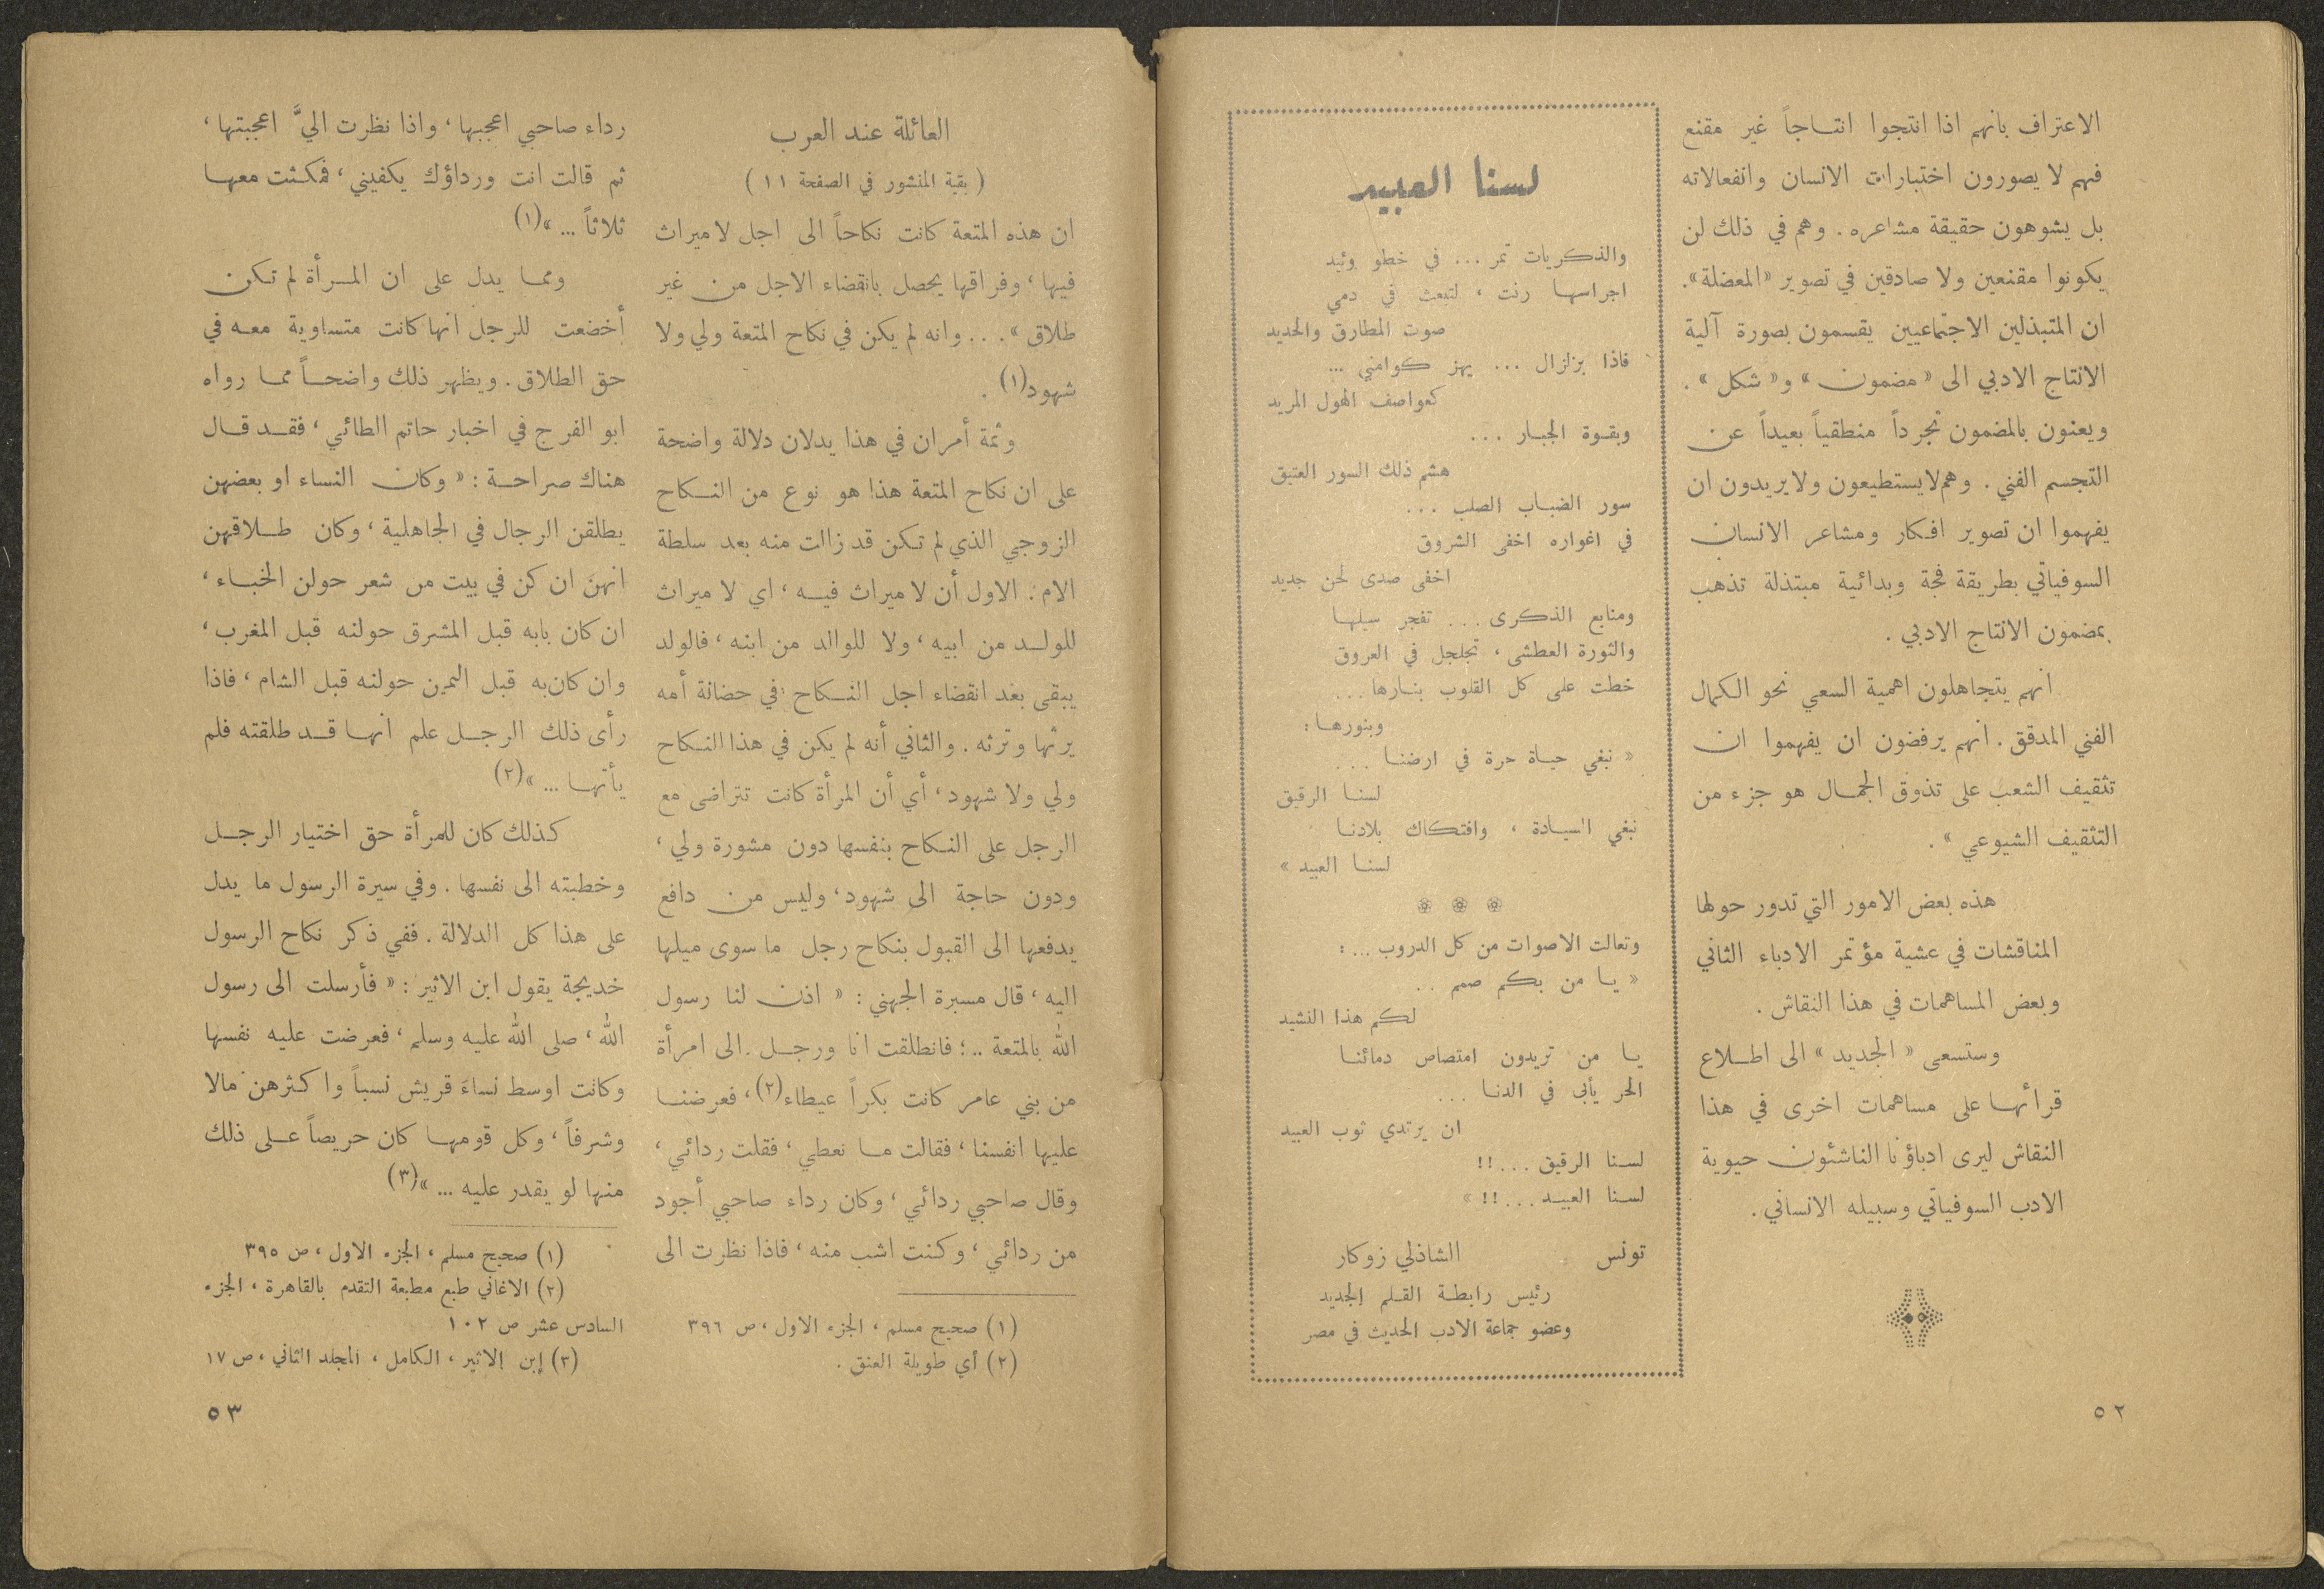 الاعتراف بانهم اذا انتجوا انتاجاً غير مقنع
فهم لا يصورون اختبارات الانسان وانفعالاته
بل يشوهون حقيقة مشاعره . وهم في ذلك لن
يكونوا مقنعين ولا صادقين في تصوير «المعضلة».
ان المتبذلين الاجتماعيين يقسمون بصورة آلية
الانتاج الادبي الى « مضمون » و« شكل » .
ويعنون بالمضمون تجرداً منطقياً بعيداً عن
التجسم الفني . وهم لا يستطيعون ولا يريدون ان
يفهموا ان تصوير افكار ومشاعر الانسان
السوفياتي بطريقة فجة وبدائية مبتذلة تذهب
بمضمون الانتاج الادبي .
انهم يتجاهلون اهمية السعي نحو الكمال
الفني المدقق . انهم يرفضون ان يفهموا ان
تثقيف الشعب على تذوق الجمال هو جزء من
التثقيف الشيوعي » .
هذه بعض الامور التي تدور حولها
المناقشات في عشية مؤتمر الادباء الثاني
وبعض المساهمات في هذا النقاش .
وستسعى « الجديد » الى اطلاع
قرائها على مساهمات اخرى في هذا
النقاش ليرى ادباؤنا الناشئون حيوية
الادب السوفياتي وسبيله الانساني .
٥٢
لسنا العبيد
والذكريات تمر ... في خطو وئيد
اجراسها رنت ، لتبعث في دمي
صوت المطارق والحديد
فاذا بزلزال ... يهز كوامني ...
كعواصف الهول المريد
وبقوة الجبار ...
هشم ذلك السور العتيق
سور الضباب الصلب ...
في اغواره اخفى الشروق
اخفى صدى لحن جديد
ومنابع الذكرى ... تفجر سيلها
والثورة العطشى ، تجلجل في العروق
خطت على كل القلوب بنارها ...
وبنورها :
« نبغي حياة حرة في ارضنا ...
لسنا الرقيق
نبغي السيادة ، وافتكاك بلادنا
لسنا العبيد »
وتعالت الاصوات من كل الدروب ... :
« يا من بكم صمم ..
لكم هذا النشيد
يا من تريدون امتصاص دمائنا
الحر يأبى في الدنا ...
ان يرتدي ثوب العبيد
لسنا الرقيق ...!!
لسنا العبيد ...!! »
تونس الشاذلي زوكار
رئيس رابطة القلم الجديد
وعضو جماعة الادب الحديث في مصر
العائلة عند العرب
( بقية المنشور في الصفحة ١١ )
ان هذه المتعة كانت نكاحاً الى اجل لا ميراث
فيها ، وفراقها يحصل بانقضاء الاجل من غير
طلاق » ... وانه لم يكن في نكاح المتعة ولي ولا
شهود(١) .
وثمة أمران في هذا يدلان دلالة واضحة
على ان نكاح المتعة هذا هو نوع من النكاح
الزوجي الذي لم تكن قد زالت منه بعد سلطة
الام : الاول أن لا ميراث فيه ، اي لا ميراث
للولد من ابيه ، ولا للوالد من ابنه ، فالولد
يبقى بعد انقضاء اجل النكاح في حضانة أمه
يرثها وترثه . والثاني أنه لم يكن في هذا النكاح
ولي ولا شهود ، أي أن المرأة كانت تتراضى مع
الرجل على النكاح بنفسها دون مشورة ولي ،
ودون حاجة الى شهود ، وليس من دافع
يدفعها الى القبول بنكاح رجل ما سوى ميلها
اليه ، قال مسبرة الجهني : « اذن لنا رسول
الله بالمتعة .. ؛ فانطلقت انا ورجل الى امرأة
من بني عامر كانت بكراً عيطاء(٢) ، فعرضنا
عليها انفسنا ، فقالت ما نعطي ، فقلت ردائي ،
وقال صاحبي ردائي ، وكان رداء صاحبي أجود
من ردائي ، وكنت اشب منه ، فاذا نظرت الى
(١) صحيح مسلم ، الجزء الاول ، ص ٣٩٦
(٢) أي طويلة العنق .
رداء صاحبي اعجبها ، واذا نظرت اليَّ اعجبتها ،
ثم قالت انت ورداؤك يكفيني ، فمكثت معها
ثلاثاً ... »(١)
ومما يدل على ان المرأة لم تكن
أخضعت للرجل انها كانت متساوية معه في
حق الطلاق . ويظهر ذلك واضحاً مما رواه
ابو الفرج في اخبار حاتم الطائي ، فقد قال
هناك صراحة : « وكان النساء او بعضهن
يطلقن الرجال في الجاهلية ، وكان طلاقهن
انهن ان كن في بيت من شعر حولن الخباء ،
ان كان بابه قبل المشرق حولنه قبل المغرب ،
وان كان به قبل اليمين حولنه قبل الشام ، فاذا
رأى ذلك الرجل علم انها قد طلقته فلم
يأتها ... »(٢)
كذلك كان للمرأة حق اختيار الرجل
وخطبته الى نفسها . وفي سيرة الرسول ما يدل
على هذا كل الدلالة . ففي ذكر نكاح الرسول
خديجة يقول ابن الاثير : « فأرسلت الى رسول
الله ، صلى الله عليه وسلم ، فعرضت عليه نفسها
وكانت اوسط نساء قريش نسباً واكثرهن مالا
وشرفاً ، وكل قومها كان حريصاً على ذلك
منها لو يقدر عليه ... »(٣)
(١) صحيح مسلم ، الجزء الاول ، ص ٣٩٥
(٢) الاغاني طبع مطبعة التقدم بالقاهرة ، الجزء
السادس عشر ص ١٠٢
(٣) إبن الاثير ، الكامل ، المجلد الثاني ، ص ١٧
٥٣